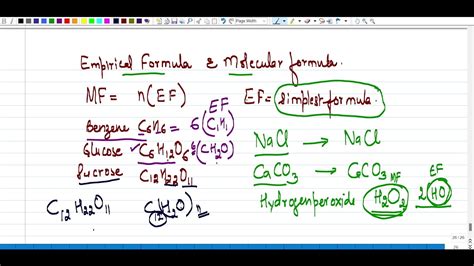 Page Width
Empirical Formula & Molecular formula.
MF = n(EF) EF = Simplest formula.
EF
Benzene C6H6 = 6(C1H1)
Glucose C6H12O6 (CH2O)
Sucrose C12H22O11
C12H22O11 C12(H2O)11
NaCl → NaCl
CaCO3 → CaCO3
MF EF
Hydrogen peroxide H2O2 2(HO)